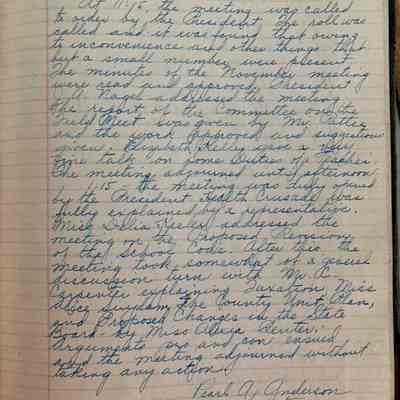 At 11:15, the meeting was called
to order by the President. The roll was
called and it was found that owing
to inconvenience and other things that
but a small number were present.
The minutes of the November meeting
were read and approved. President
addressed the meeting.
The report of the Committee on the
Field Meet was given by Mr.
and the work approved and suggestions
given. Elizabeth Kelley gave a very
fine talk on Some Duties of Teacher.
The meeting adjourned until afternoon.
1:15 - The meeting was duly opened
by the President. Health Crusade was
fully explained by a representative.
Miss Delia addressed the
meeting on the Proposed Revision
of the School Code. After this the
meeting took somewhat of a general
discussion turn with Mr. C.
Carpenter explaining Taxation, Miss
Alice the County Unit Plan,
and Proposed Changes in the State
Board by Miss
Arguments pro and con ensued
and the meeting adjourned without
taking any action.
Pearl A. Anderson